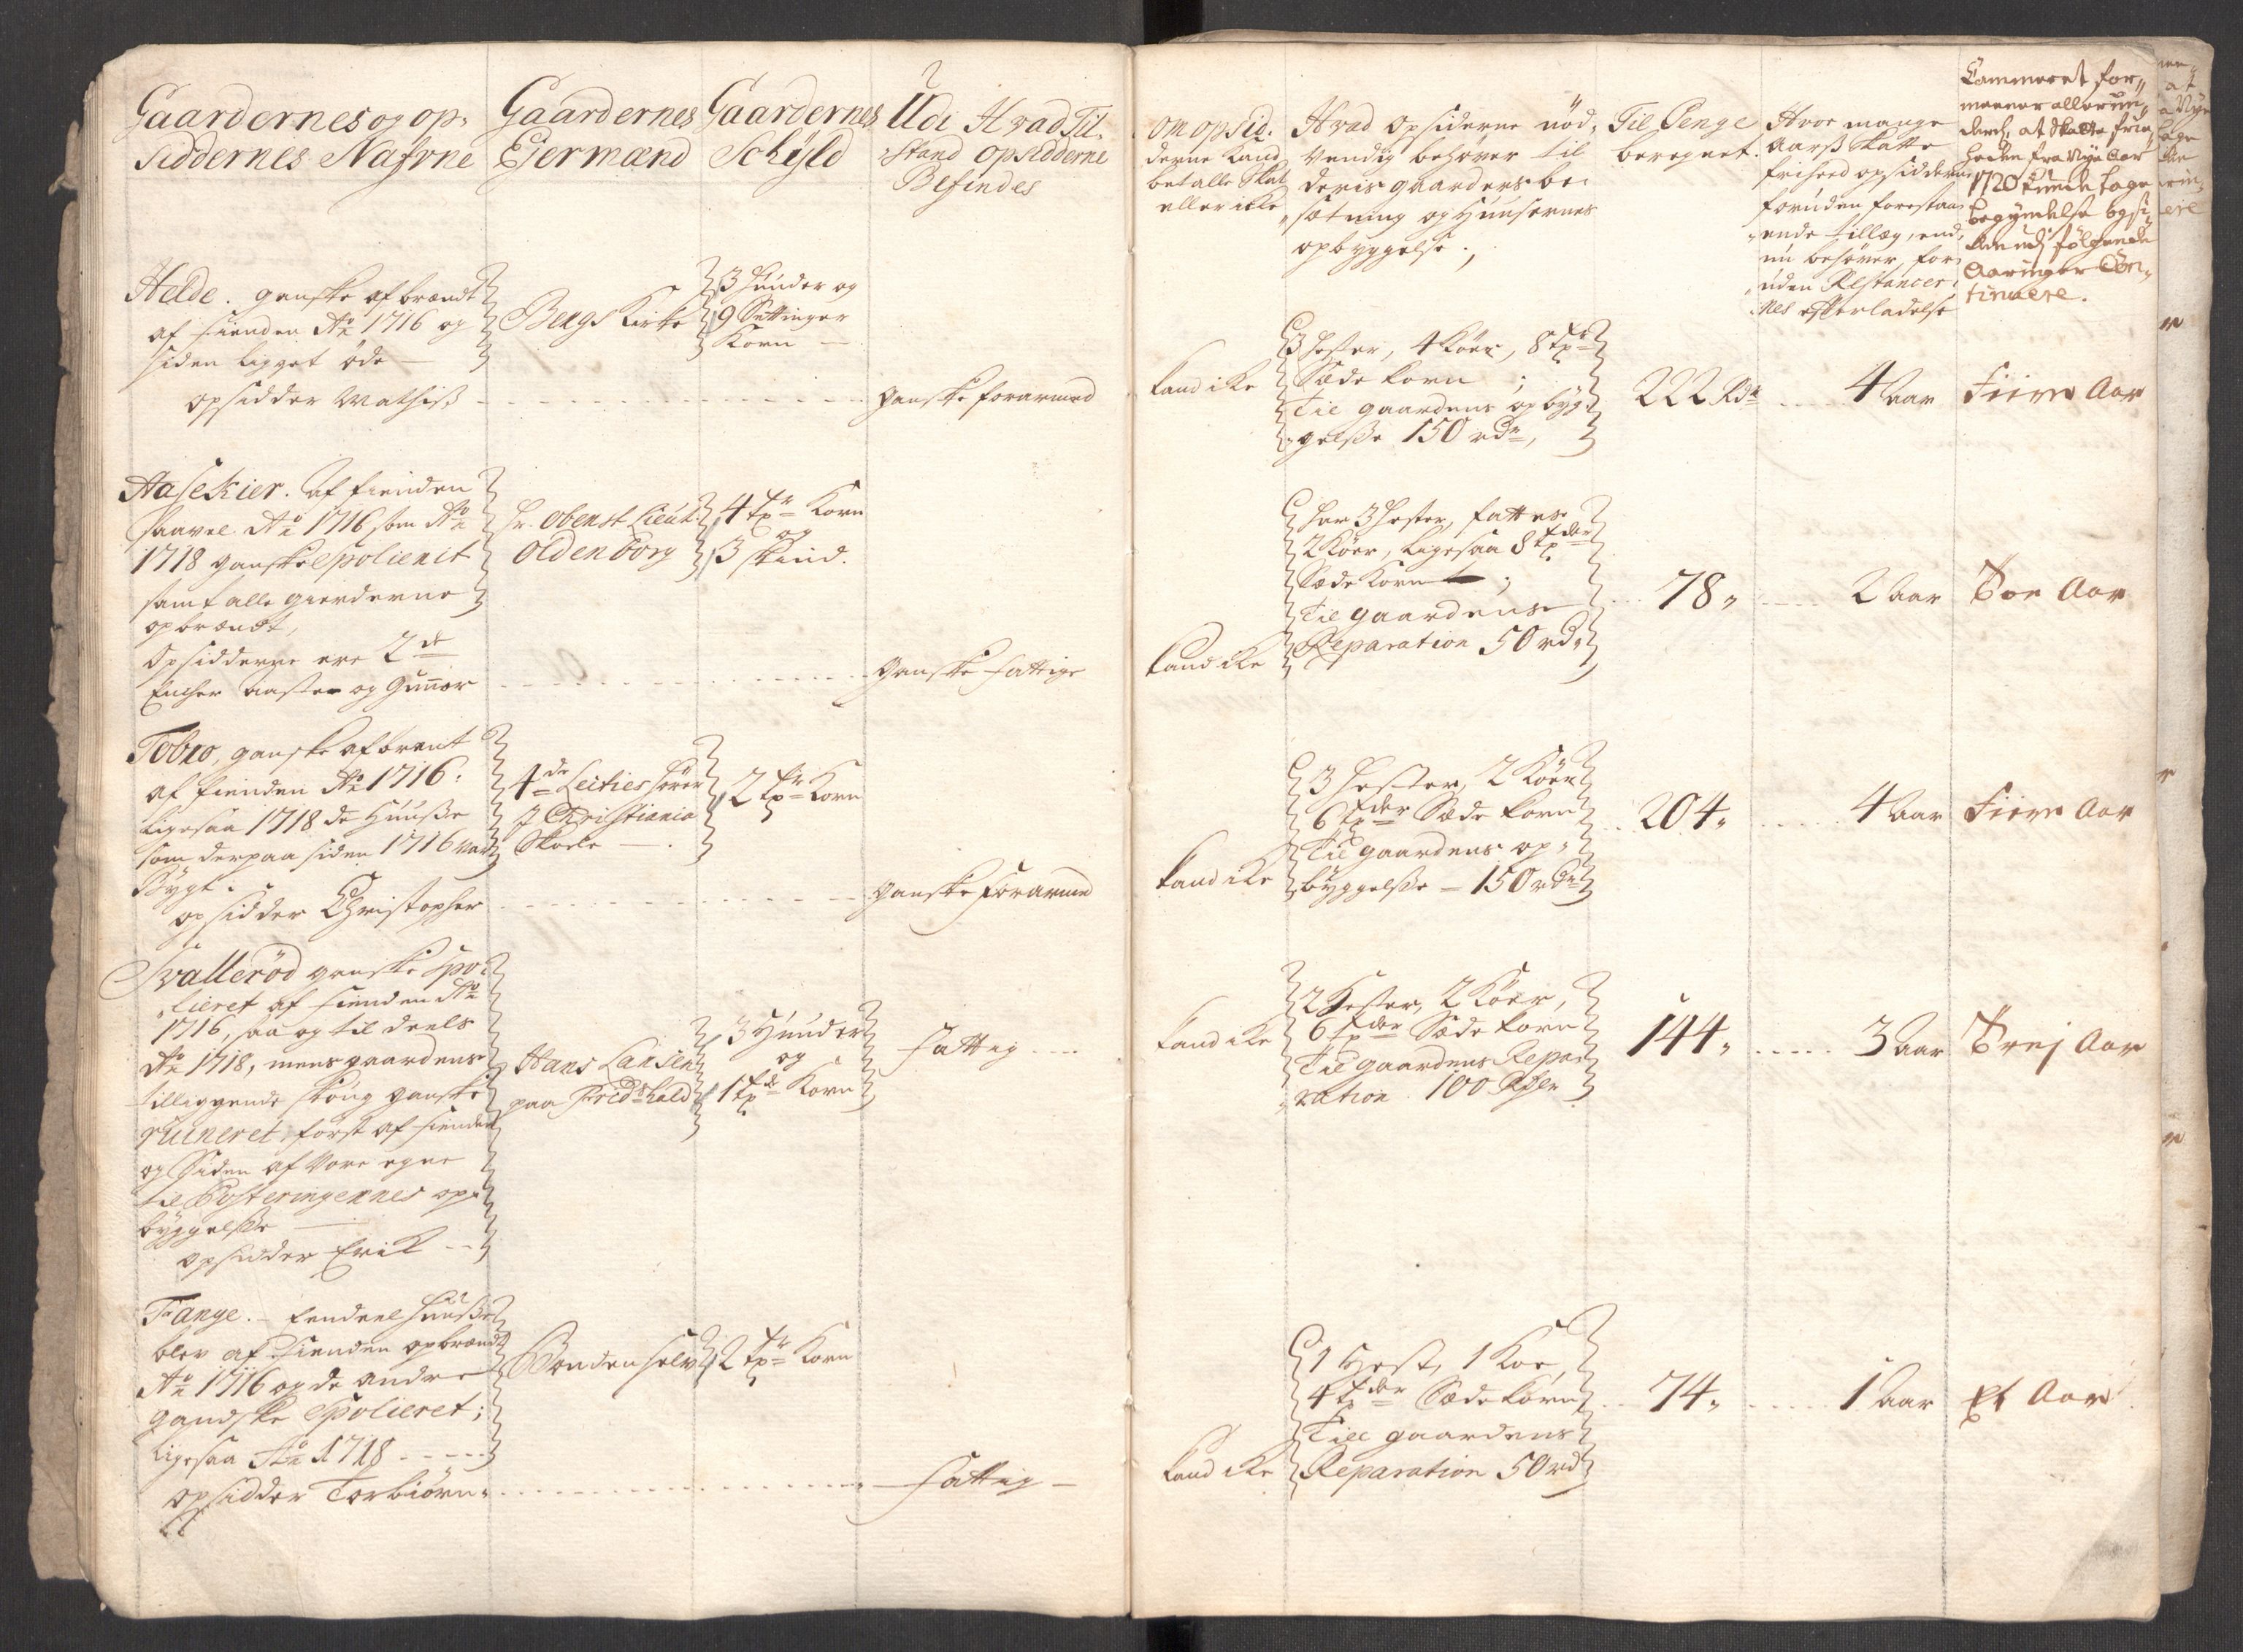 Gaardernes og op-
Siddernes Nafvne
Gaardernes
Ejermænd
Gaardernes
Schÿld
Udi Hvad Til-
stand opsidderne
Befindes
om opsid-
derne kand
betalle Skat
eller icke
Hvad opsiderne nöd-
vendig behöver til
deris gaarders be-
sætning og Huusernes
opbyggelse.
Til Penge
beregnet.
Hvor mange
Aarß Skatte
friheed opsidderne
foruden forestaa-
ende tillæg, end-
nu behöver, for-
uden Restancer-
nes efterladelse
Cammeret for-
meener allerun-
derd. at Skatte frie-
heden fra Nye Aar
1720 kunde tage
begyndelse og si-
den udj følgende
Aaringer Con-
tinuere.
Helde. ganske afbrændt
af fienden Ao 1716 og
siden ligget öde
opsidder Mathiß
Bergs Kirke
3 Hunder og
9 Settinger
Korn
ganske forarmed
kand icke
3 Hester, 4 Köer, 8 tdr
Sæde Korn;
Til gaardens opbyg-
gelße 150 rdr,
222 Rdr
4 Aar
Fiire Aar
Aasekier. af fienden
saavel Ao 1716 som Ao
1718 ganske Spolierit
samt alle gierderne
opbrændt,
opsidderne ere 2de
og Gunder
hr. Oberst Lieut.
Oldenborg
4 tdr Korn
og
3 skind.
ganske fattige
kand icke
har 3 Hester, fattes
2 Köer, ligesaa 8 tder
Sæde Korn;
Til gaardens
Reparation 50 rd.
78.
2 Aar
Toe Aar
Tobro, ganske afbrent
af fienden Ao 1716.
ligesaa 1718 de Huuße
som derpaa siden 1716 var
Bÿgt.
opsidder Christopher
4de Lecties hörer
j Christiania
Skoele
2 tdr Korn
ganske forarmed
kand icke
3 Hester, 2 Köer
6 tder Sæde Korn
Til gaardens op-
bÿggelße 150 rdr
204.
4 Aar
Fiire Aar
Svalleröd ganske Spo-
lieret af fienden Ao
1716, saa og til deels
Ao 1718, mens gaardens
tilliggende skoug ganske
ruineret, först af fienden
og Siden af vore egne
til Posteringernes op-
bÿggelße
opsidder Erik
Hans Larsen
paa Fridrhald
3 Hunder
og
1 td Korn
fattig
kand icke
2 Hester, 2 Köer,
6 tder Sæde Korn
Til gaardens Repa-
ration 100 Rdlr
144.
3 Aar
Trej Aar
Tange. Eendeel Huuße
blev af fienden opbrændt
Ao 1716 og de andre
gandske Spolieret;
ligesaa Ao 1718
opsidder Torbiörn.
Bonden selv
2 tdr Korn
fattig
kand icke
1 Hest, 1 Koe,
4 tder Sæde Korn
Till gaardens
Reparation 50 rd
74.
1 Aar
Et Aar